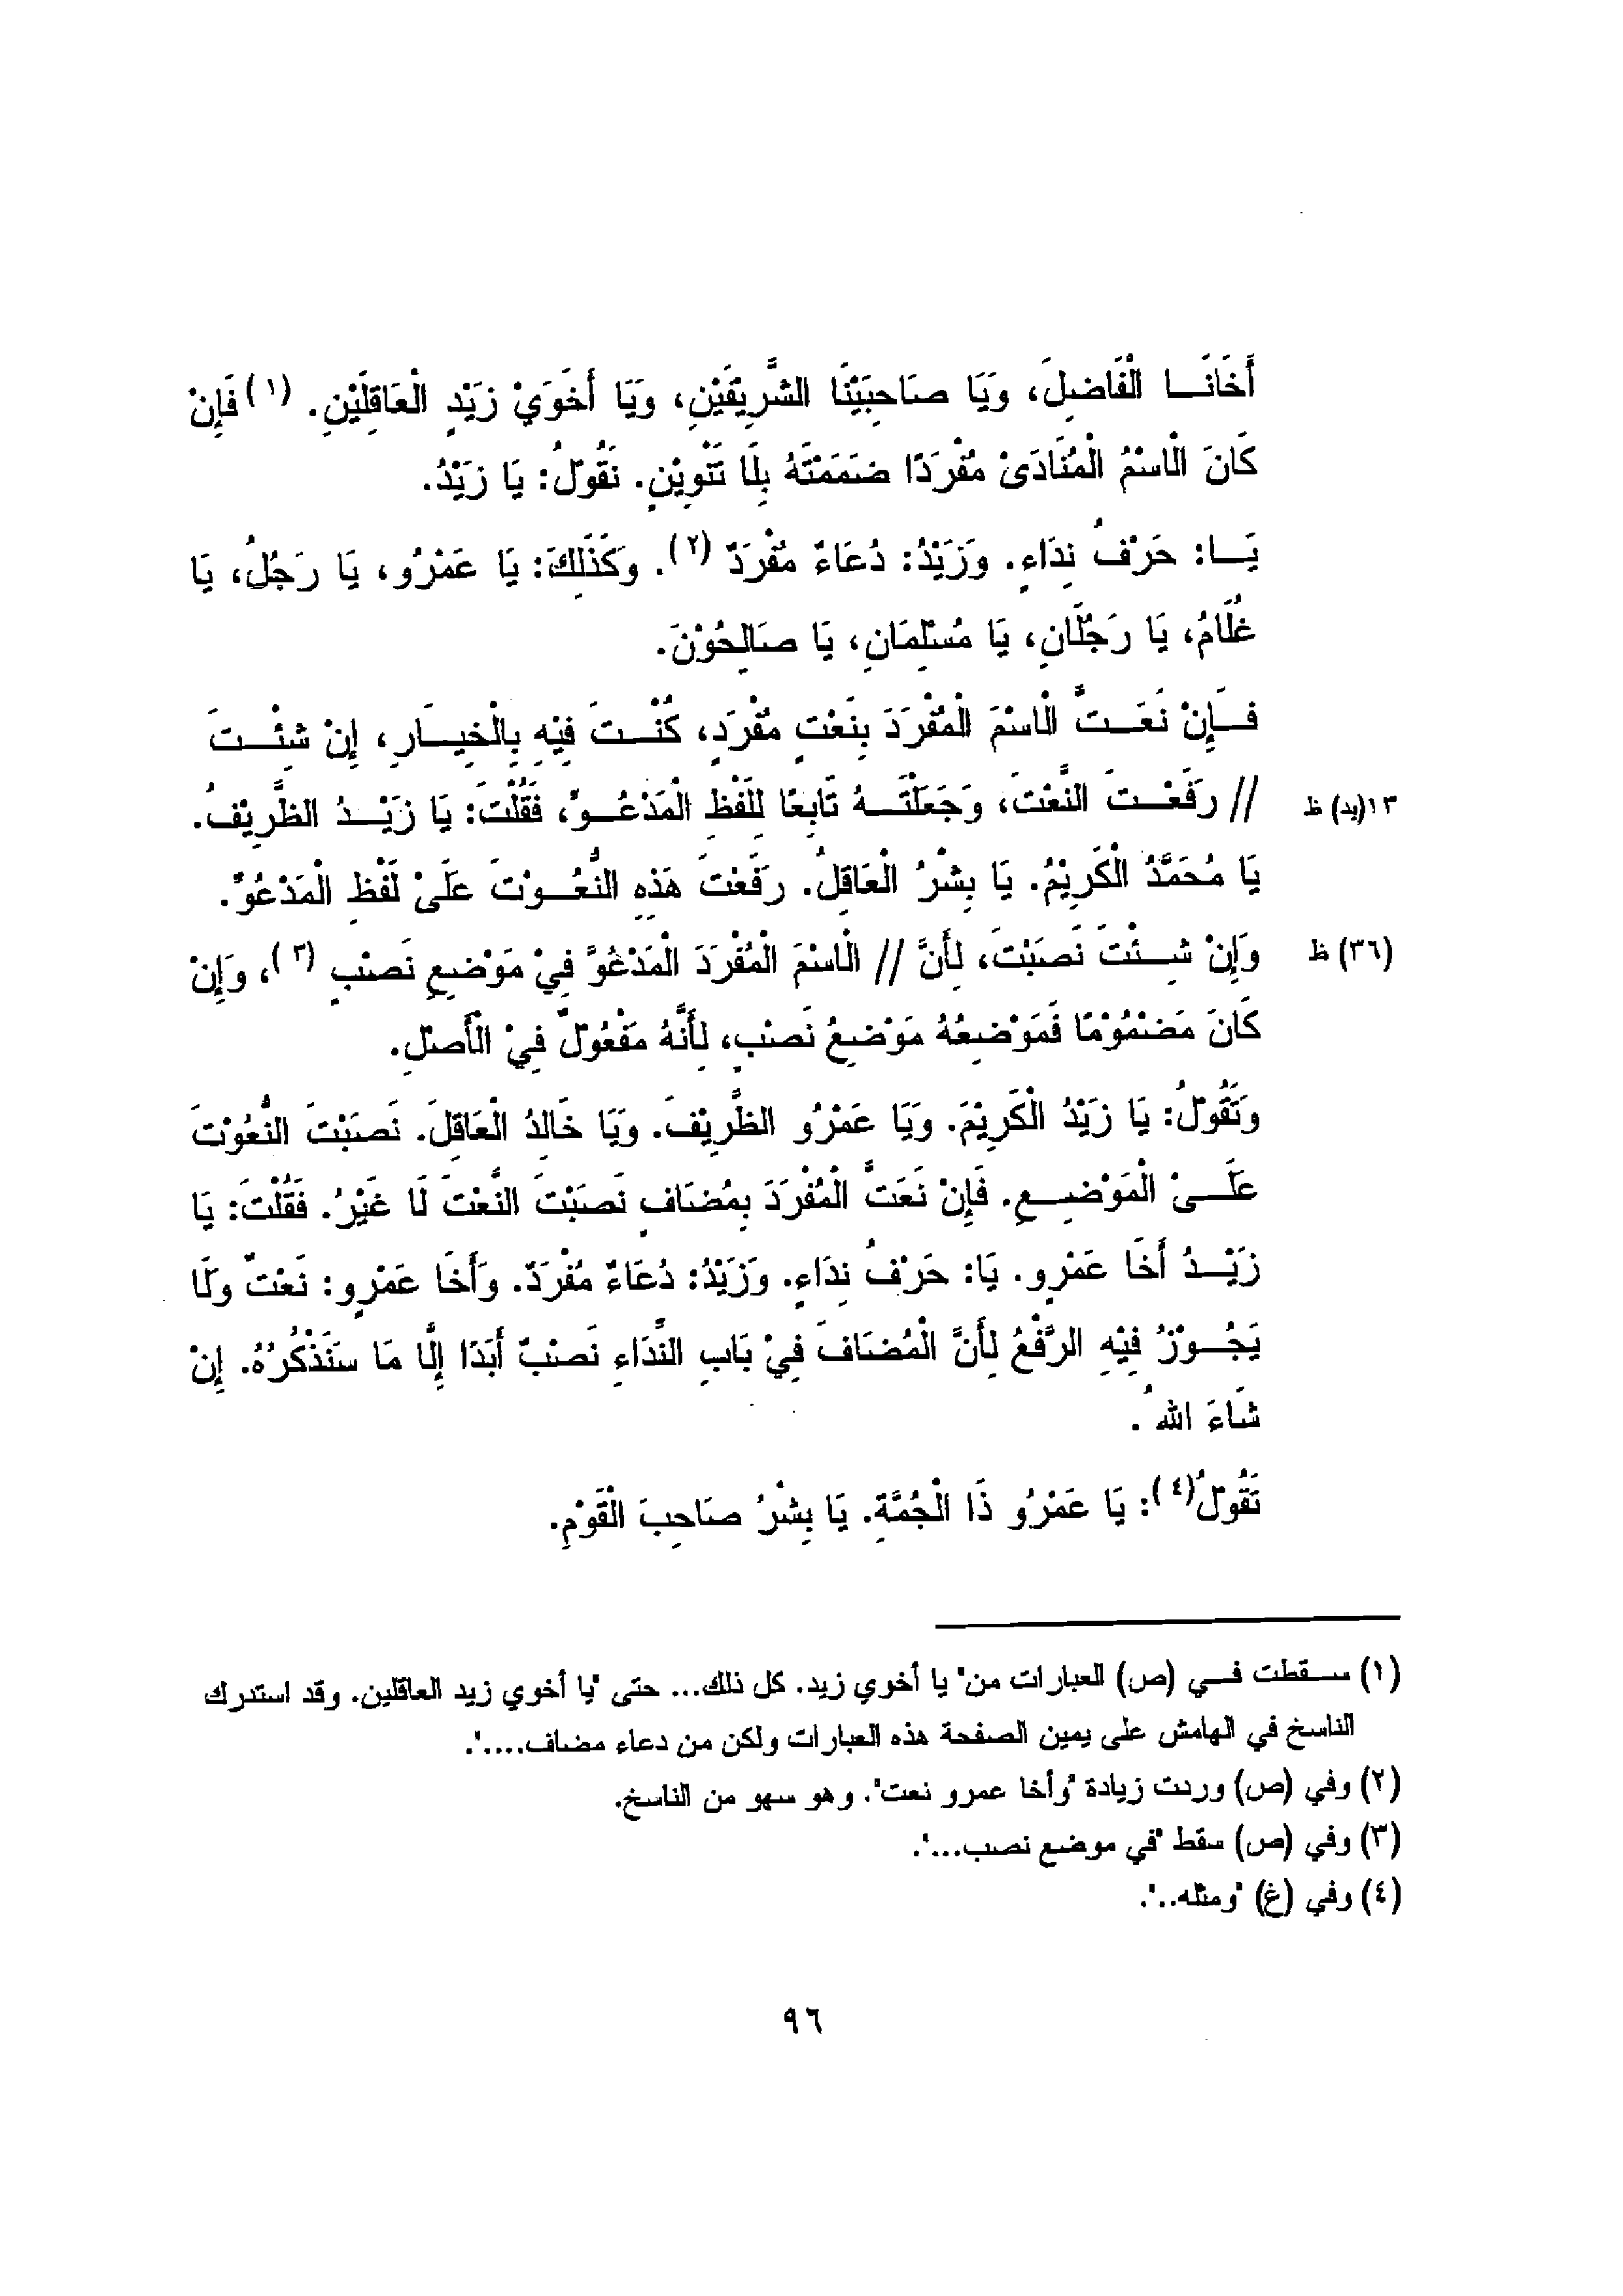 أَخَانَا الْفَاضِلَ، وَيَا صَاحِبَيْنَا الشَّرِيْفَيْنِ، وَيَا أَخَوَيْ زَيْدٍ الْعَاقِلَيْنِ. (١) فَإِنْ
كَانَ الْاسْمُ الْمُنَادَىْ مُفْرَدًا ضَمَمْتَهُ بِلَا تَنْوِيْنٍ. نَقُوْلُ: يَا زَيْدُ.
يَا: حَرْفُ نِدَاءٍ. وَزَيْدُ: دُعَاءٌ مُفْرَدٌ (٢). وَكَذَلِكَ: يَا عَمْرُو، يَا رَجُلُ، يَا
غُلَامُ، يَا رَجُلَانِ، يَا مُسْلِمَانِ، يَا صَالِحُوْنَ.
فَإِنْ نَعَتَّ الْاسْمَ الْمُفْرَدَ بِنَعْتٍ مُفْرَدٍ، كُنْتَ فِيْهِ بِالْخِيَارِ، إِنْ شِئْتَ
// رَفَعْتَ النَّعْتَ، وَجَعَلْتَهُ تَابِعًا لِلَفْظِ الْمَدْعُوِّ، فَقُلْتَ: يَا زَيْدُ الظَّرِيْفُ.
١٣(يد) ظ
يَا مُحَمَّدُ الْكَرِيْمُ. يَا بِشْرُ الْعَاقِلُ. رَفَعْتَ هَذِهِ النُّعُوْتَ عَلَىْ لَفْظِ الْمَدْعُوِّ.
وَإِنْ شِئْتَ نَصَبْتَ، لِأَنَّ // الْاسْمَ الْمُفْرَدَ الْمَدْعُوَّ فِيْ مَوْضِعِ نَصْبٍ (٣)، وَإِنْ
(٣٦) ظ
كَانَ مَضْمُوْمًا فَمَوْضِعُهُ مَوْضِعُ نَصْبٍ، لِأَنَّهُ مَفْعُوْلٌ فِيْ الْأَصْلِ.
وَتَقُوْلُ: يَا زَيْدُ الْكَرِيْمَ. وَيَا عَمْرُو الظَّرِيْفَ. وَيَا خَالِدُ الْعَاقِلَ. نَصَبْتَ النُّعُوْتَ
عَلَىْ الْمَوْضِعِ. فَإِنْ نَعَتَّ الْمُفْرَدَ بِمُضَافٍ نَصَبْتَ النَّعْتَ لَا غَيْرُ. فَقُلْتَ: يَا
زَيْدُ أَخَا عَمْرٍو. يَا: حَرْفُ نِدَاءٍ. وَزَيْدُ: دُعَاءٌ مُفْرَدٌ. وَأَخَا عَمْرٍو: نَعْتٌ وَلَا
يَجُوْزُ فِيْهِ الرَّفْعُ لِأَنَّ الْمُضَافَ فِيْ بَابِ النِّدَاءِ نَصْبٌ أَبَدًا إِلَّا مَا سَنَذْكُرُهُ. إِنْ
شَاءَ اللهُ .
تَقُوْلُ(٤): يَا عَمْرُو ذَا الْجُمَّةِ. يَا بِشْرُ صَاحِبَ الْقَوْمِ.
(١) سقطت في (ص) العبارات من" يا أخوي زيد. كل ذلك... حتى "يا أخوي زيد العاقلين. وقد استدرك
الناسخ في الهامش على يمين الصفحة هذه العبارات ولكن من دعاء مضاف....".
(٢) وفي (ص) وردت زيادة "وأخا عمرو نعت". وهو سهو من الناسخ.
(٣) وفي (ص) سقط "في موضع نصب...".
(٤) وفي (غ) "ومثله..".
٩٦